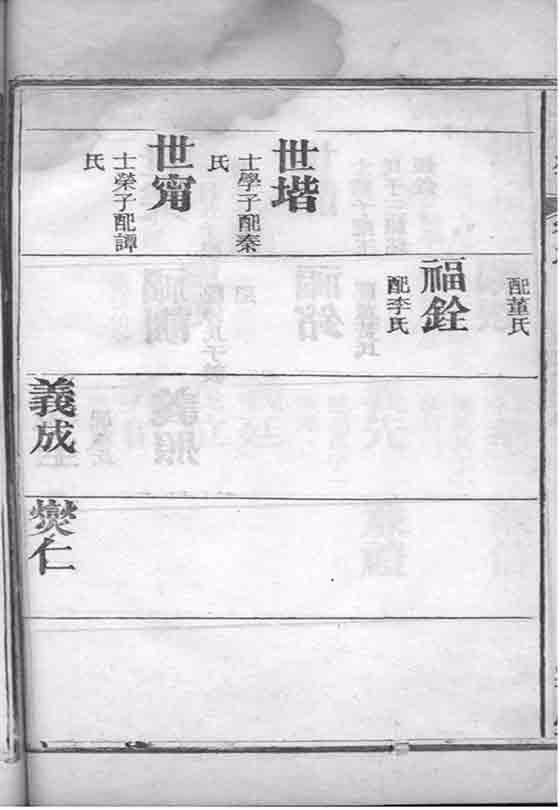 世堦
士學子配秦
氏
世甯
士榮子配譚
氏
配董氏
福銓
配李氏
義成
爕仁